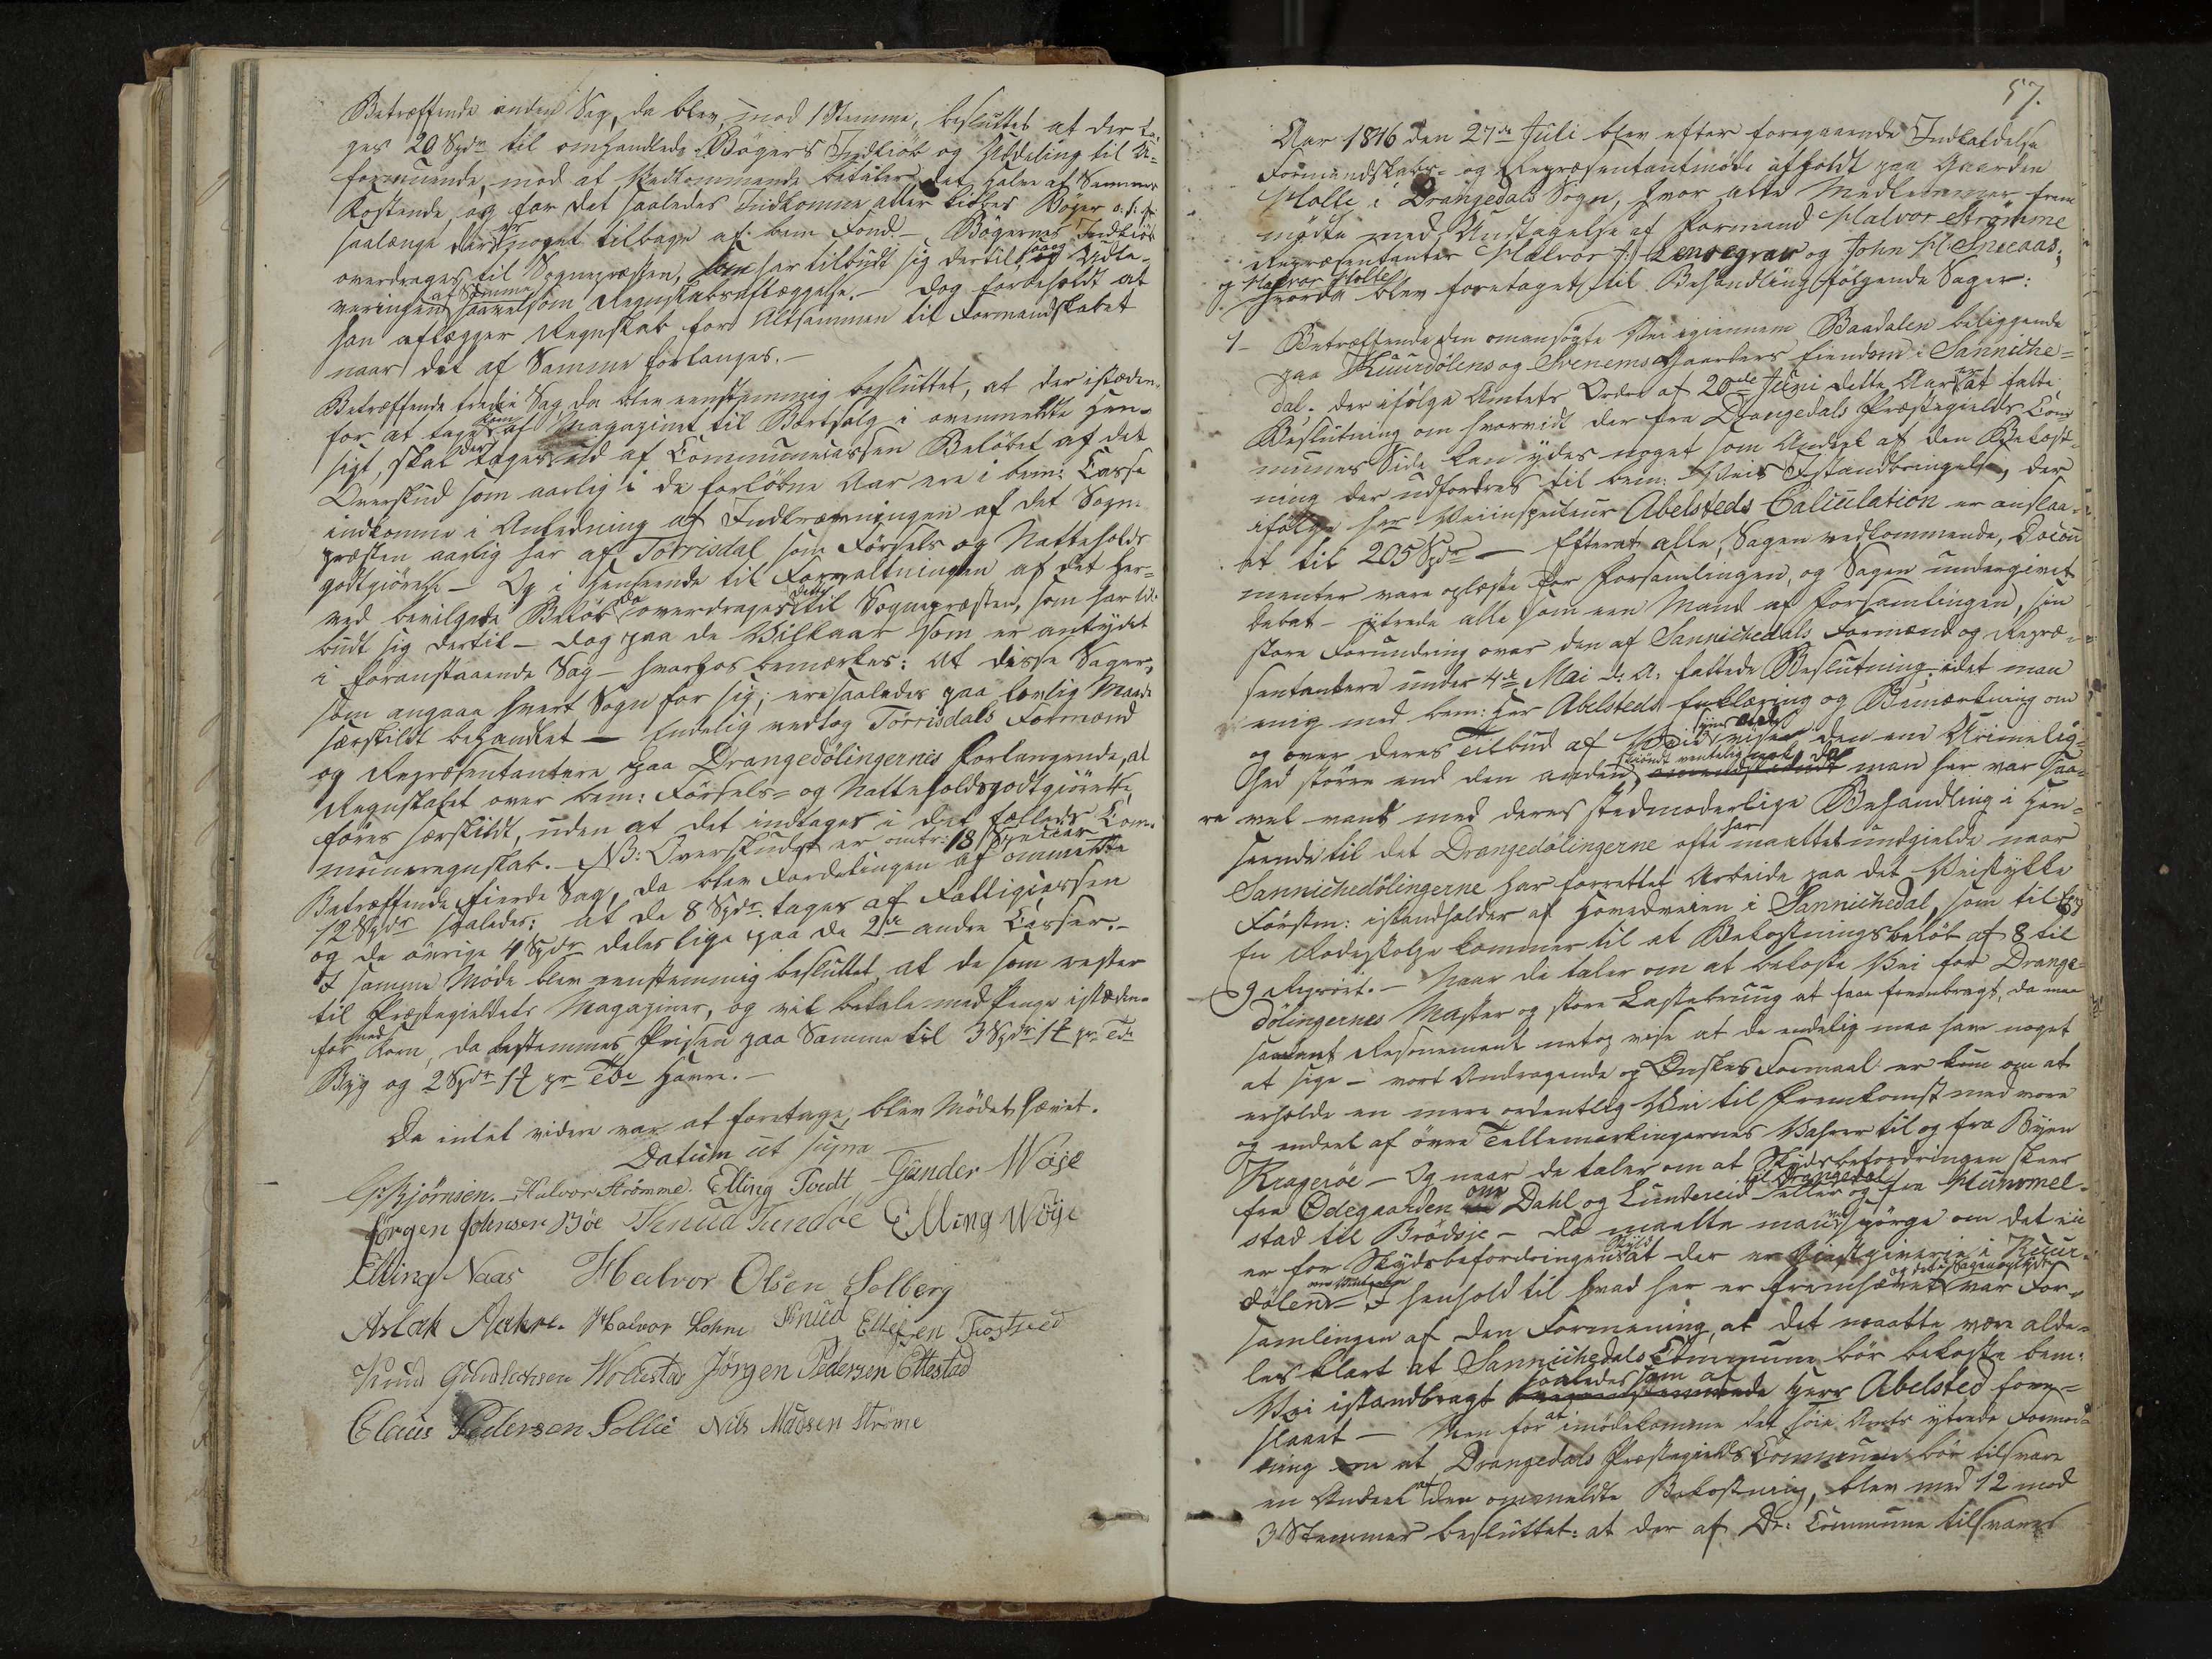 Betræffende anden Sag, da blev, mod 1 Stemme, besluttet at der ta-
ges 20 Spdr til omhandlede Bøgers Indkiøb og Uddeling til U-
formuende, mod at Vedkommende betaler det halve af Sammes
Kostende, og for det saaledes Indkomne atter kiøbes Bøger o.s.fr.
saalænge der er noget tilbage af bem: Fond. — Bøgernes Indkiøb
overdrages til Sognepræsten, som har tilbudt sig dertil, saa og Udle-
veringen af Samme saavelsom Regnskabsaflæggelse. — Dog forbeholdt at
han aflægger Regnskab for Altsammen til Formandskabet
naar det af Samme forlanges. —
Betræffende tredie Sag da blev eenstemmig besluttet, at der isteden-
for at tage Korn af Magazinet til Bortsalg i ovenmeldte Hen-
sigt, skal der tages ud af Communecassen Beløbet af det
Overskud som aarlig i de forløbne Aar ere i bem: Casse
indkomne i Anledning af Indkrævningen af det Sogne-
præsten aarlig har af Tørrisdal som Førsels og Natteholds
godtgiørelse — Og i Henseende til Forvaltningen af det her-
ved bevilgede Beløb da overdrages dette til Sognepræsten, som har til-
budt sig dertil — dog paa de Vilkaar som er antydet
i foranstaaende Sag — hvorhos bemærkes: At disse Sager,
som angaae hvert Sogn for sig, ere saaledes paa lovlig Maade
særskildt behandlet — Endelig vedtog Tørrisdals Formænd
og Repræsentantere paa Drangedølingernes Forlangende, at
Regnskabet over bem: Førsels- og Natteholdsgodtgiørelse,
føres særskildt, uden at det indtages i det fælleds Com-
muneregnskab. — NB: Overskudet er omtr: 18 Specier
Betræffende fierde Sag, da blev Fordelingen af ommeldte
12 Spdr saaledes: at de 8 Spdr. tages af Fattigcassen
og de øvrige 4 Spdr deles lige paa de 2de andre Casser. —
I samme Møde blev eenstemmig besluttet at de som rester
til Præstegieldets Magaziner, og vil betale med Penge isteden-
for med Korn, da bestemmes Prisen paa Samme til 3 Spdr 1 ₶ pr Tde
Byg og 2 Spdr 1 ₶ pr Tde Havre. —
Da intet videre var at foretage, blev Mødet hævet.
Datum ut supra
Bjørnsen. Halvor Strømme. Elling Tvedt Gunder Wøje
Jørgen Johnsen Bøe Knud Tundøe Elling Wøje
Elling Naas Halvor Olsen Solberg
Aslak Aakre. Halvor Lohne Knud Ellefsen Trostued
Knud Gundersen Wollestad Jørgen Pedersen Ettestad
Claus Pedersen Sollie Nils Madsen Strøme
57.
Aar 1846 den 27de Juli blev efter foregaaende Indkaldelse
Formandskabs- og Repræsentantmøde afholdt paa Gaarden
Holte i Drangedals Sogn, hvor alle Medlemmer frem
mødte med Undtagelse af Formand Halvor Strømme
Repræsentanter Halvor J: Lensegrav og John H: Snecaas,
og Halvor Holte hvorda blev foretaget til Behandling følgende Sager:
1 — Betræffende den omansøgte Vei igiennem Baadalen beliggende
paa Kuurdølens og Svenems Gaarders Eiendom i Sanniche-
dal. der ifølge Amtets Ordre af 20de Juni dette Aar er at fatte
Beslutning om hvorvidt der fra Drangedals Præstegields Com-
munes Side kan ydes noget som Andeel af den Bekost-
ning der udfordres til bem: Veis Istandbringelse, der
ifølge Hr Veiinspecteur Abelsteds Calculation er anslaa-
et til 205 Spdr — Efterat alle, Sagen vedkommende, Docu
menter vare oplæste for Forsamlingen, og Sagen undergivet
debat — yttrede alle som een Mand af Forsamlingen, sin
store Forundring over den af Sannichedals Formænd og Repræ-
sentantere under 4de Mai d. A. fattede Beslutning, idet man
enig med bem: Herr Abelsteds Erklæring og Bemærkning om
og over deres Tilbud af Veie viser den ene Urimelig-
hed større end den anden skiøndt ventelig nok, da man her var saa-
re vel vant med deres stedmoderlige Behandling i Hen-
seende til det Drangedølingerne ofte har maattet undgielde naar
Sannichedølingerne har forrettet Arbeide paa det Veistykke
Førstn: istandholder af Hovedveien i Sannichedal, som til
En Rodestolpe kommer til at Bekostningsbeløb af 8 til
9 Reparit. — Naar de taler om at bekoste Vei for Drange-
dølingernes Master og store Lastebrug at faae frembragt, da maa
saadant Resonement netop vise at de endelig maa have noget
at sige — vort Andragende og Ønskes Formaal er kun om at
erholde en mere ordentlig Vei til Fremkomst med vore
og endeel af øvre Tellemarkingernes Vahrer til og fra Byen
Kragerøe — Og naar de taler om at Skydsbefordringen skeer
fra Ødegaarden om Dahl og Lundereid til Drangedal eller og fra Hummel-
stad til Brødsje — da maatte man spørge om det ei
er for Skydsbefordringens Skyld at der er Giæstgiverie i Kuur-
dølen — I henhold til hvad her er fremhævet og det i Sagen oplyste var For-
samlingen af den Formening, at det maatte være alde-
les klart at Sannichedals Commune bør bekoste bem:
Vei istandbragt saaledes som af Herr Abelsted fore-
slaaet — Men for at imødekomme det høie Amts yttrede Formod-
ning om at Drangedals Præstegields Commune bør tilsvare
en Andeel af den ommeldte Bekostning, blev med 12 mod
3 Stemmer besluttet: at der af Dr: Commune tilsvares